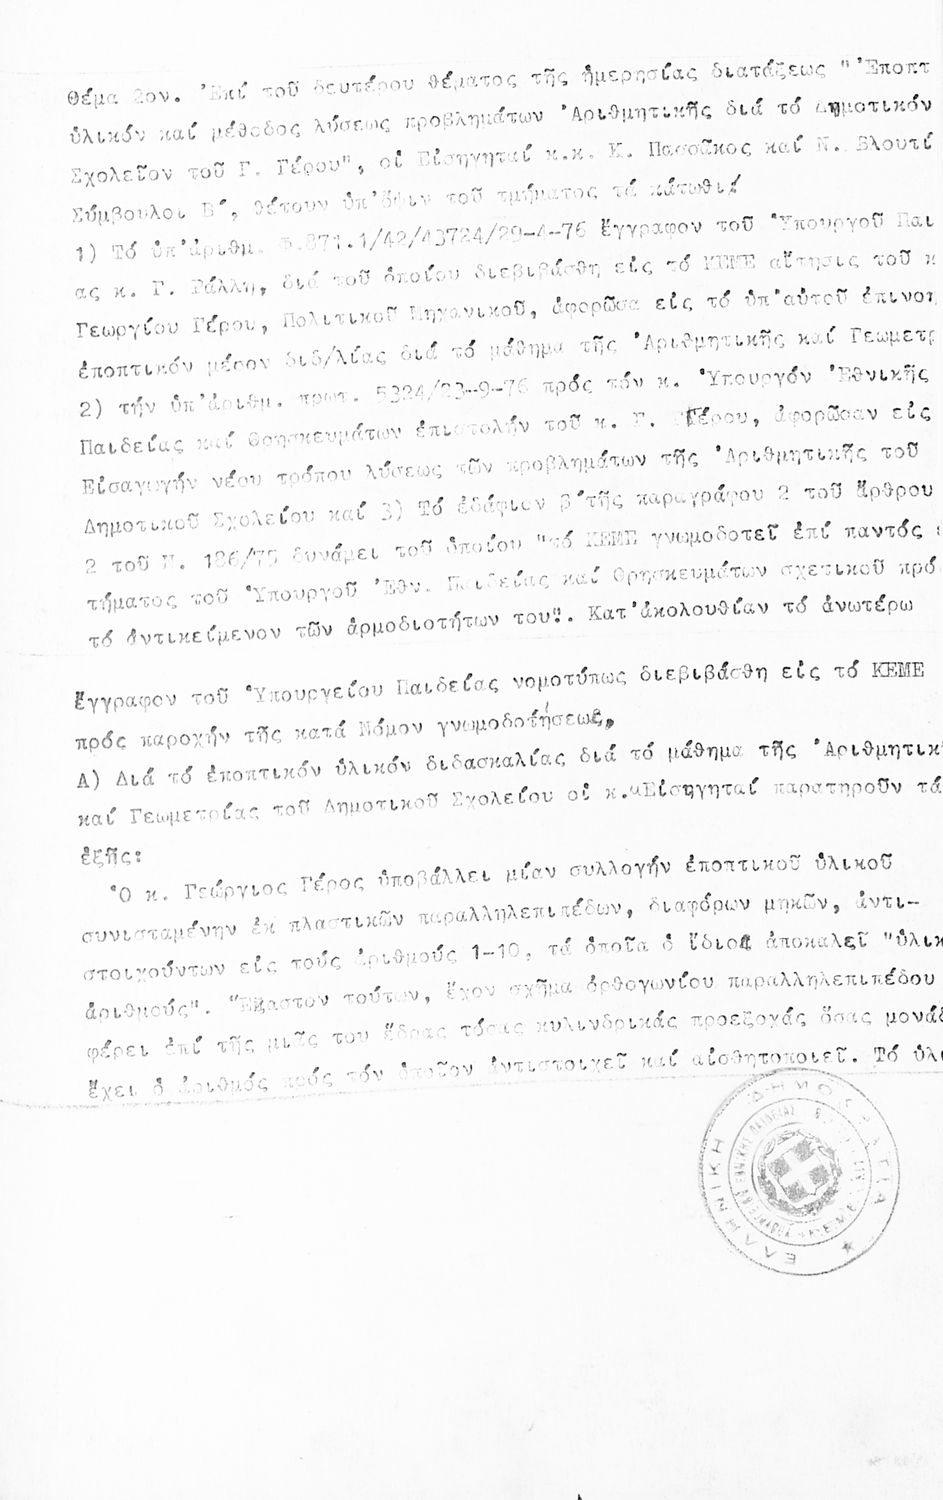 Θέμα 2ον. Ἐπί τοῦ δευτέρου θέματος τῆς ἡμερησίας διατάξεως "Ἐποπτ
ὑλικόν καί μέθοδος λύσεως προβλημάτων Ἀριθμητικῆς διά τό Δημοτικόν
Σχολεῖον τοῦ Γ. Γέρου", οἱ Εἰσηγηταί κ.κ. Κ. Πασσᾶκος καί Ν. Βλουτί
Σύμβουλοι Β΄, θέτουν ὑπ'ὄψιν τοῦ τμήματος τά κάτωθι:
1) Τό ὑπ'ἀριθμ. Φ.871.1/42/43724/29-4-76 ἔγγραφον τοῦ Ὑπουργοῦ Παι
ας κ. Γ. Ράλλη, διά τοῦ ὁποίου διεβιβάσθη εἰς τό ΚΕΜΕ αἴτησις τοῦ κ
Γεωργίου Γέρου, Πολιτικοῦ Μηχανικοῦ, ἀφορῶσα εἰς τό ὑπ'αὐτοῦ ἐπινοη
ἐποπτικόν μέσον διδ/λίας διά τό μάθημα τῆς Ἀριθμητικῆς καί Γεωμετρ
2) τήν ὑπ'ἀριθμ. πρωτ. 5324/23-9-76 πρός τόν κ. Ὑπουργόν Ἐθνικῆς
Παιδείας καί Θρησκευμάτων ἐπιστολήν τοῦ κ. Γ. Γέρου, ἀφορῶσαν εἰς
Εἰσαγωγήν νέου τρόπου λύσεως τῶν προβλημάτων τῆς Ἀριθμητικῆς τοῦ
Δημοτικοῦ Σχολείου καί 3) Τό ἐδάφιον β΄τῆς παραγράφου 2 τοῦ ἄρθρου
2 τοῦ Ν. 186/75 δυνάμει τοῦ ὁποίου "τό ΚΕΜΕ γνωμοδοτεῖ ἐπί παντός
τήματος τοῦ Ὑπουργοῦ Ἐθν. Παιδείας καί Θρησκευμάτων σχετικοῦ πρό
τό ἀντικείμενον τῶν ἁρμοδιοτήτων του". Κατ'ἀκολουθίαν τό ἀνωτέρω
ἔγγραφον τοῦ Ὑπουργείου Παιδείας νομοτύπως διεβιβάσθη εἰς τό ΚΕΜΕ
πρός παροχήν τῆς κατά Νόμον γνωμοδοτήσεως,
Α) Διά τό ἐποπτικόν ὑλικόν διδασκαλίας διά τό μάθημα τῆς Ἀριθμητικ
καί Γεωμετρίας τοῦ Δημοτικοῦ Σχολείου οἱ κ.κ.Εἰσηγηταί παρατηροῦν τά
ἑξῆς:
Ὁ κ. Γεώργιος Γέρος ὑποβάλλει μίαν συλλογήν ἐποπτικοῦ ὑλικοῦ
συνισταμένην ἐκ πλαστικῶν παραλληλεπιπέδων, διαφόρων μηκῶν, ἀντι-
στοιχούντων εἰς τούς ἀριθμούς 1-10, τά ὁποῖα ὁ ἴδιος ἀποκαλεῖ "ὑλικ
ἀριθμούς". Ἕκαστον τούτων, ἔχον σχῆμα ὀρθογωνίου παραλληλεπιπέδου
φέρει ἐπί τῆς μιᾶς του ἕδρας τόσας κυλινδρικάς προεξοχάς ὅσας μονάδ
ἔχει ὁ ἀριθμός πρός τόν ὁποῖον ἀντιστοιχεῖ καί αἰσθητοποιεῖ. Τό ὑλ
ΕΛΛΗΝΙΚΗ ΔΗΜΟΚΡΑΤΙΑ